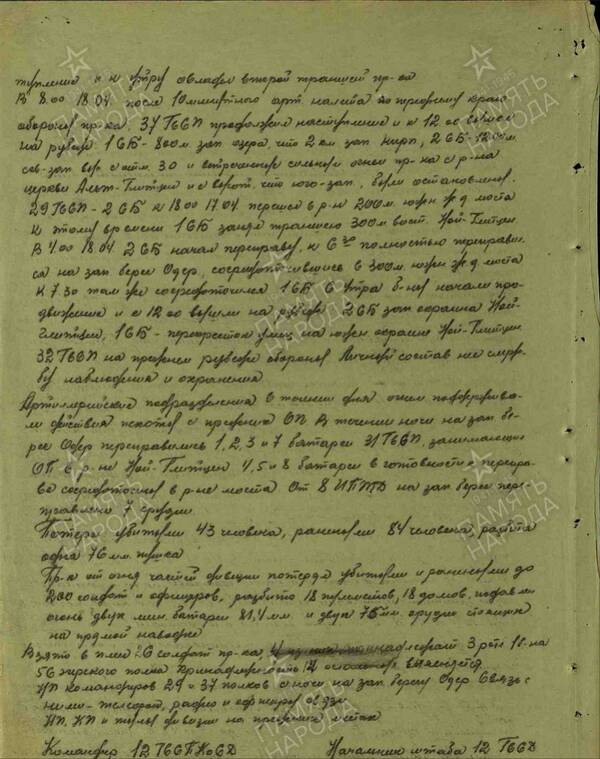 тупление и к утру овладел второй траншеей пр-ка
В 8.00 18.04 после 10 минутного арт. налета по переднему краю
обороны пр-ка 37 ГвСП продолжил наступление и к 12.00 вышел
на рубеж 1 СБ - 800м. зап. озера, что 2 км зап. 2 СБ - 1200м.
сев-зап. выс. с отм. 3.0 и встреченные сильным огнем пр-ка с р-на
церкви Альт-Глитцен и с высот, что юго-зап., были остановлены.
29 ГвСП - 2 СБ к 18.00 17.04 перешел в р-н 200м. южн. ж.д. моста
К этому времени 1 СБ занял траншею 300м вост. Ной-Глитцен
В 4.00 18.04 2 СБ начал переправу, к 6.30 полностью переправил-
ся на зап. берег Одер, сосредоточившись в 300м. южн. ж.д. моста
К 7.30 там же сосредоточился 1 СБ. С утра б-ны начали про-
движение и к 12.00 вышли на рубеж 2 СБ зап. окраина Ной-
Глитцен, 1 СБ - перекресток улиц на южн. окраине Ной-Глитцен
32 ГвСП на прежнем рубеже обороны. Личный состав нес служ-
бу наблюдения и охранения
Артиллерийские подразделения в течении дня огнем поддержива-
ли действия пехоты с прежних ОП. В течении ночи на зап. бе-
рег Одер переправились 1, 2, 3 и 7 батареи 31 ГвСП, занимающие
ОП в р-не Ной-Глитцен 4, 5 и 8 батареи в готовности к перепра-
ве сосредоточены в р-не моста. От 8 ИПТД на зап. берег пере-
правлено 7 орудий
Потери убитыми 43 человека, ранеными 84 человека, разбита
одна 76 мм. пушка
Пр-к от огня частей дивизии потерял убитыми и ранеными до
200 солдат и офицеров, разбито 18 пулеметов, 18 домов, подавлен
огонь двух мин. батарей 81,4 мм. и двух 75 мм. орудий стоящих
на прямой наводке
Взято в плен 26 солдат пр-ка, 3 роте 1 б-на
56 егерского полка. Принадлежность остальных выясняется
НП командиров 29 и 37 полков с ночи на зап. берегу Одер. Связь с
ними - телефон, радио и офицеры связи
НП, КП и тылы дивизии на прежних местах
Командир 12 ГвСПКСД Начальник штаба 12 ГвСД
ПАМЯТЬ НАРОДА